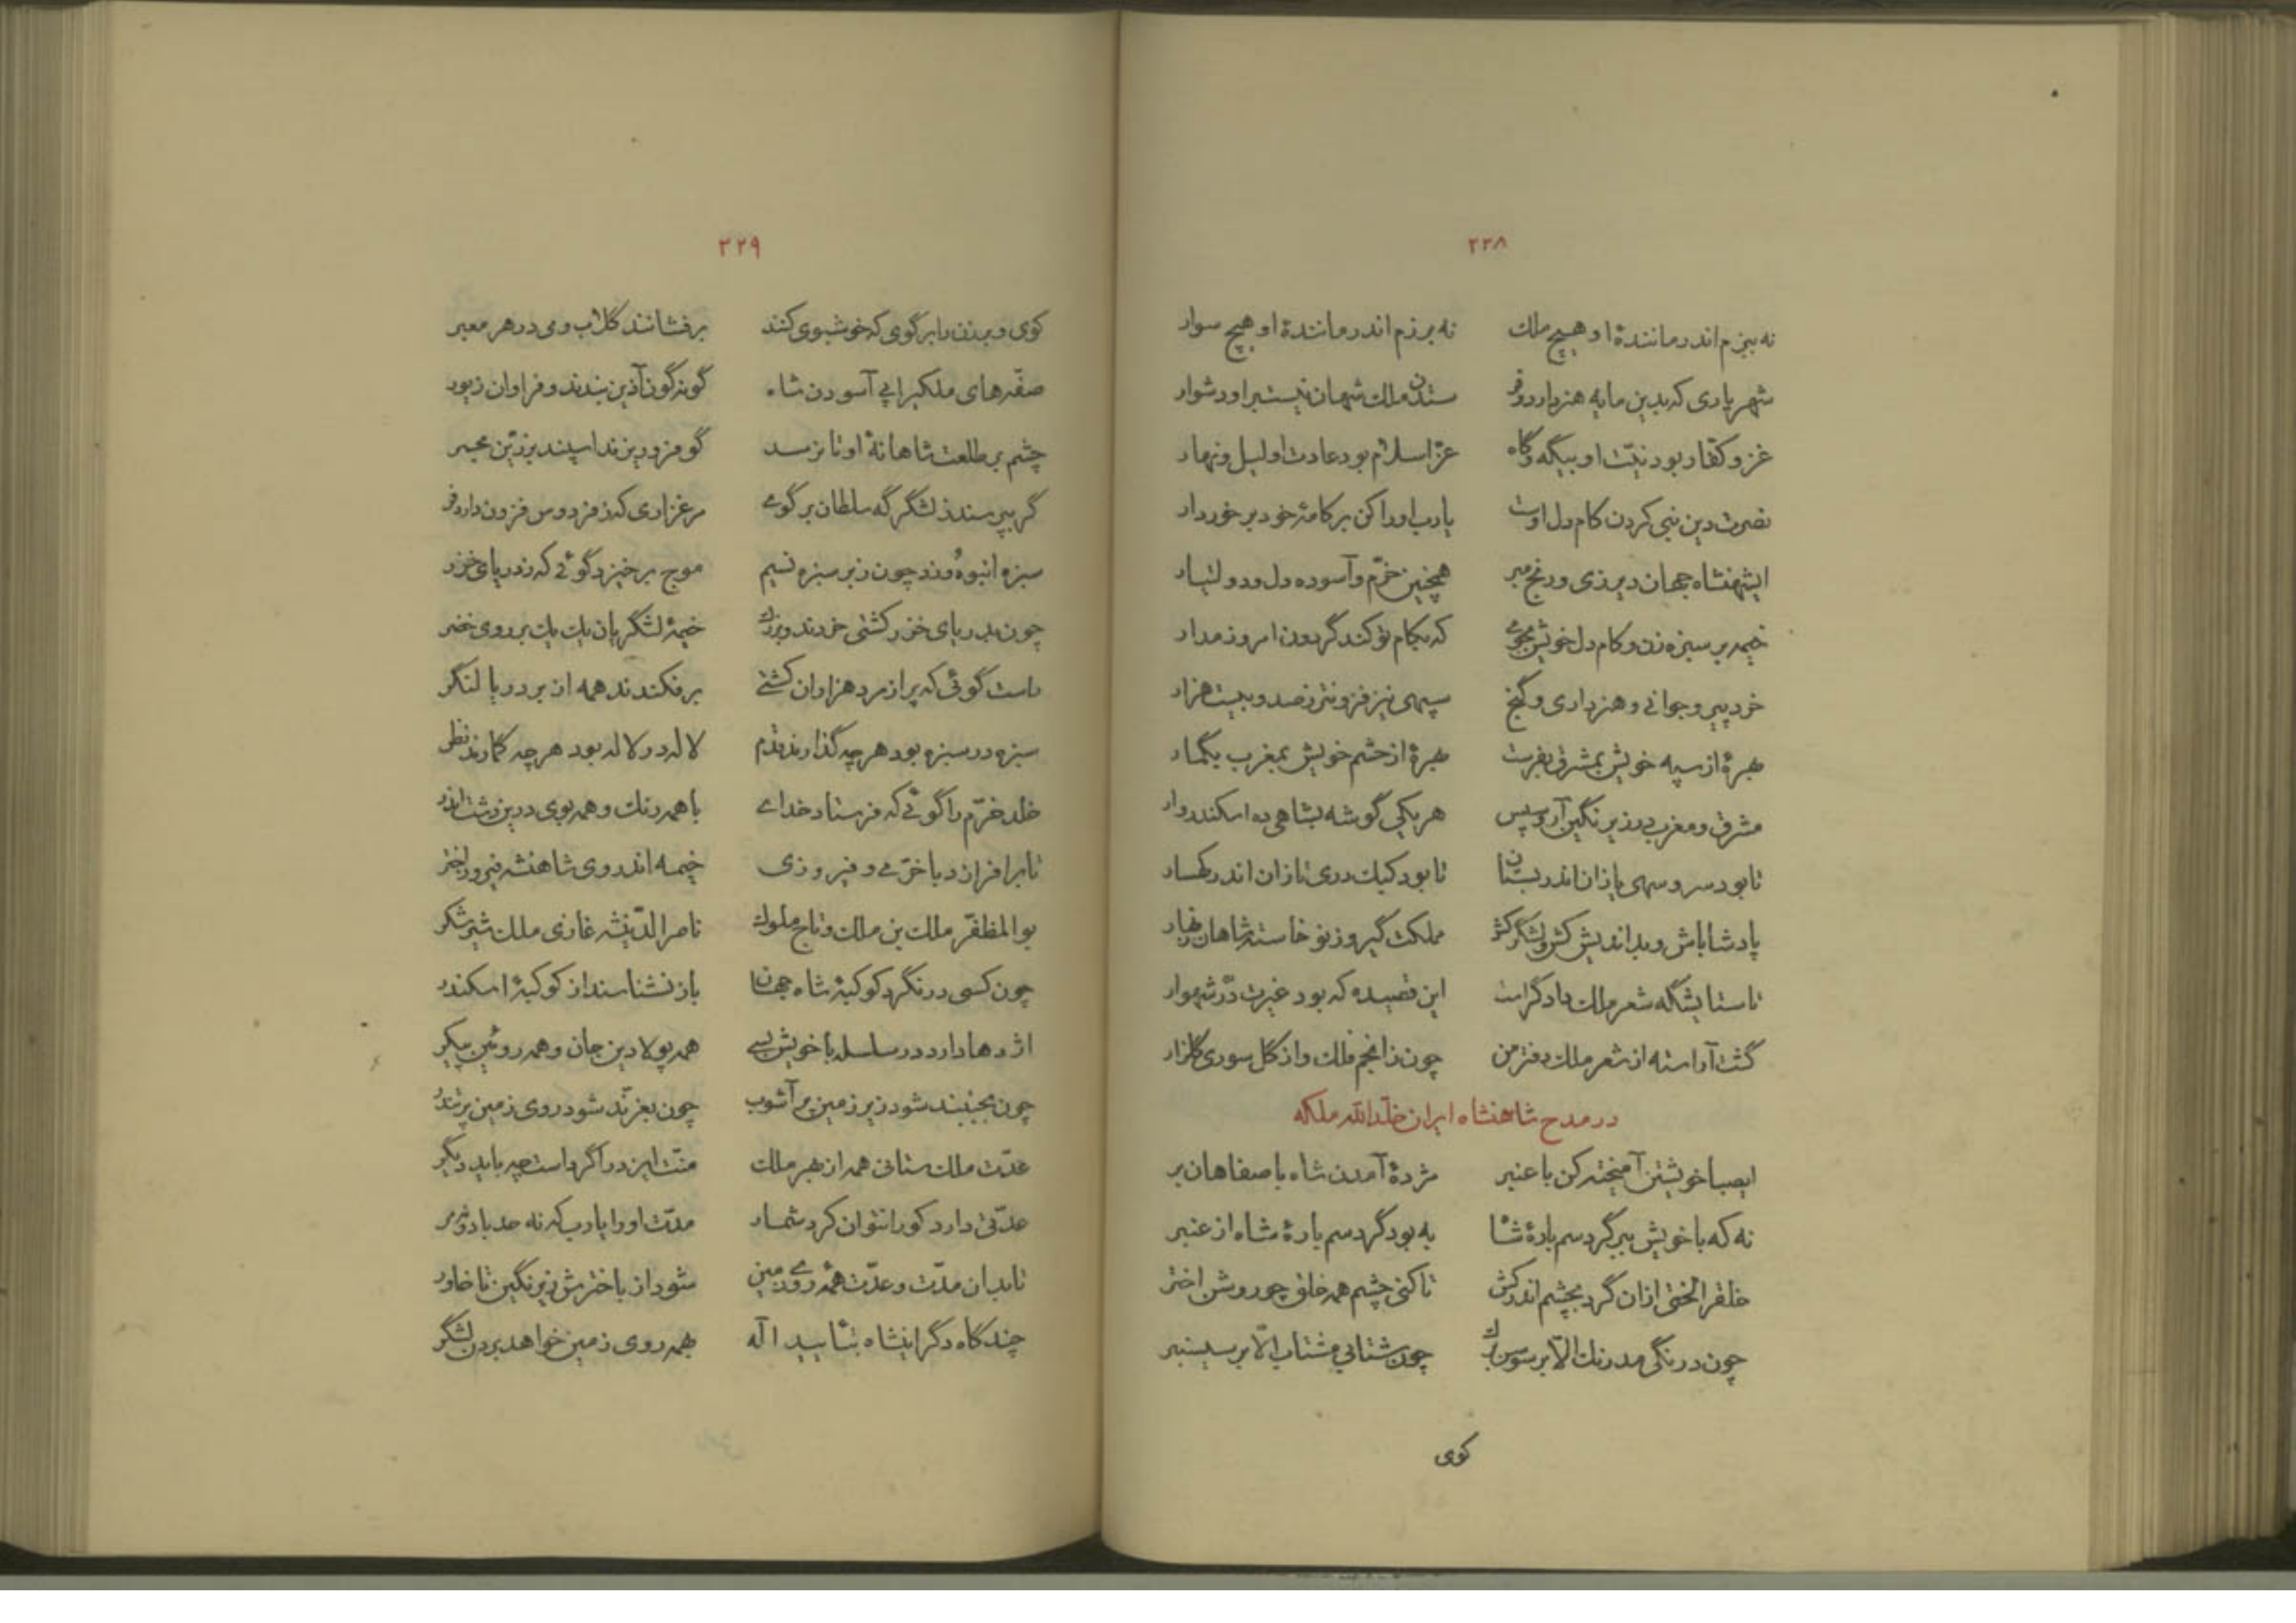 ۲۲۸
نه ببزم اندر مانندهٔ او هیچ ملک نه برزم اندر مانندهٔ او هیچ سوار
شهریاری که بدین مایه هنر دارد و فر ستدن ملک شهان نیست بر او دشوار
غزو کفار بود نیّت او بیگه و گاه عزّ اسلام بود عادت او لیل و نهار
نصرت دین نبی کردن کام دل اوست یارب او را کن بر کامهٔ خود برخوردار
ایشهنشاه جهان دیر زی و رنج مبر همچنین خرّم و آسوده دل و دولتیار
خیمه بر سبزه زن و کام دل خویش بجوی که بکام تو کند گردون امروز مدار
خرد پیر و جوانی و هنر داری و گنج سپهی نیز فزونتر ز صد و بیست هزار
بهرهٔ از سپه خویش بمشرق بفرست بهرهٔ از حشم خویش بمغرب بگمار
مشرق و مغرب در زیر نگین آر و سپس هر یکی گوشه بشاهی ده اسکندروار
تا بود سرو سهی یازان اندر بستان تا بود کبک دری نازان اندر کهسار
پادشا باش و بداندیش کش و لشکرکش مملکت گیر و ز نو خاسته شاهان
تا ستایشگه شعر ملک دادگر است این قصیده که بود غیرت درّ شهوار
گشت آراسته از شعر ملک دفتر من چون ز انجم فلک و از گل سوری گلزار
در مدح شاهنشاه ایران خلّدالله ملکه
ایصبا خویشتن آمیخته کن با عنبر مژدهٔ آمدن شاه باصفاهان بر
نه که با خویش ببر گرد سم بارهٔ شاه به بود گرد سم بارهٔ شاه از عنبر
خلق را لختی ازان گرد بچشم اندر کش تا کنی چشم همه خلق چو روشن اختر
چون درنگی مدرنگ الّا بر سوسن چون شتابی مشتاب الّا بر سیسنبر
کوی
۲۲۹
کوی و برزن را بر گوی که خوشبوی کنند برفشانند گلاب و می در هر معبر
صفّه‌های ملکی را پی آسودن شاه گونه گون آذین بندند و فراوان زیور
چشم بر طلعت شاهانهٔ او تا نرسد گو فرو ریزند اسپند بزرّین مجمر
گر بپرسند ز لشگرگه سلطان بر گوی مرغزاری که ز فردوس فزون دارد فر
سبزه انبوه و زد چون زبر سبزه نسیم موج برخیزد گوئی که ز دریای خزر
چون بدریای خزر کشتی خرد و بزرگ خیمهٔ لشگریان یک یک بر روی خضر
راست گوئی که پر از مرد هزاران کشتی برفکندند همه از بر دریا لنگر
سبزه در سبزه بود هر چه گذارند قدم لاله در لاله بود هر چه گمارند نظر
خلد خرّم را گوئی که فرستاد خدای با همه رنگ و همه بوی درین دشت اندر
تا برافرازد با خرّمی و فیروزی خیمه اندر وی شاهنشه فیروز اختر
بوالمظفّر ملک بن ملک و تاج ملوک ناصرالدّین شه غازی ملک شیر شکر
چون کسی درنگرد کوکبهٔ شاه جهان باز نشناسد از کوکبهٔ اسکندر
اژدها دارد در سلسله با خویش بسی همه پولادین جان و همه روئین پیکر
چون بجنبند شود زیر زمین پر آشوب چون بغرّند شود روی زمین پر تندر
عدّت ملک ستانی همه از بهر ملک منّت ایزد را گرد است چه باید دیگر
عدّتی دارد کو را نتوان کرد شمار مدّت او را یارب که نه حد باد و نه مر
تا بدان مدّت و عدّت همه روی زمین شود از باخترش زیر نگین تا خاور
چند گاه دگر اینشاه بتأیید اله بهمه روی زمین خواهد بردن لشگر